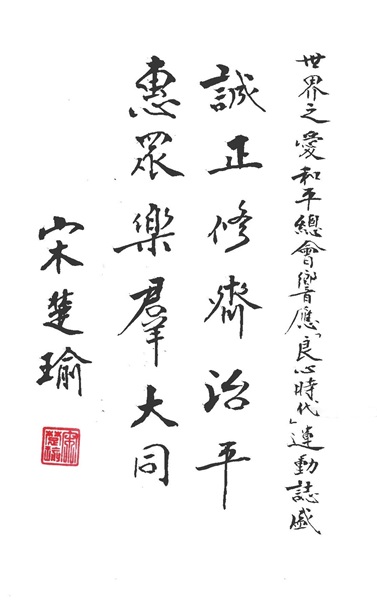 世界之愛和平總會響應「良心時代」運動誌盛
誠正修齊治平
惠眾樂群大同
宋楚瑜
宋楚瑜